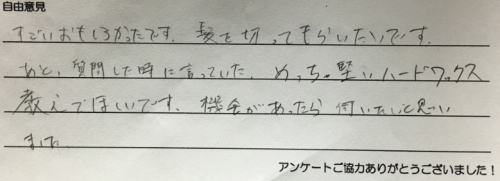 自由意見
すごいおもしろかったです。髪を切ってもらいたいです。
あと、質問した時に言っていた、めっちゃ堅いハードワックス
教えてほしいです。機会があったら伺いたいと思い
ました
アンケートご協力ありがとうございました!